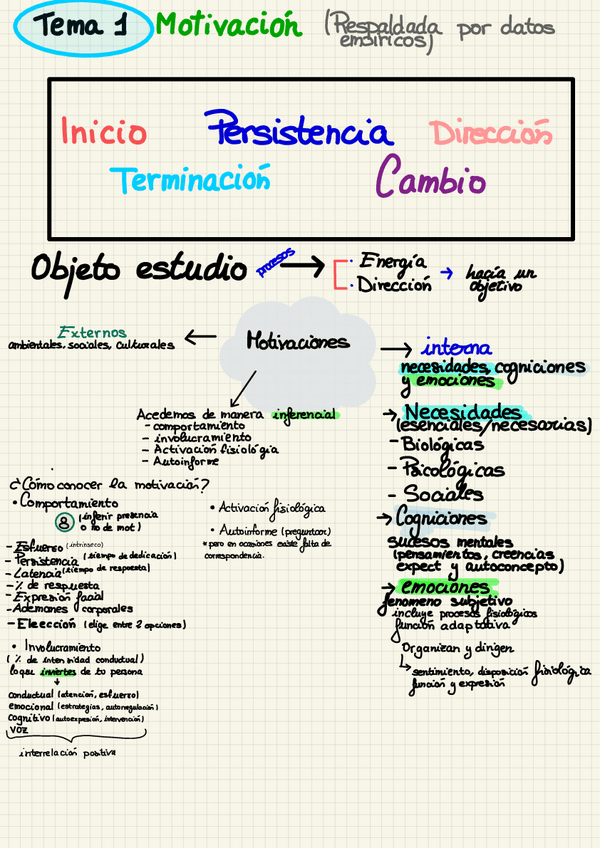 Tema 1 Motivación (Respaldada por datos
empíricos)
Inicio Persistencia Dirección
Terminación Cambio
Objeto estudio procesos → · Energía
· Dirección → hacía un
objetivo
Motivaciones
Externos
ambientales, sociales, culturales
interna
necesidades, cogniciones
y emociones
Accedemos de manera inferencial
- comportamiento
- involucramiento
- Activación fisiológia
- Autoinforme
→ Necesidades
(esenciales/necesarias)
- Biológicas
- Psicológicas
- Sociales
→ Cogniciones
sucesos mentales
(pensamientos, creencias
expect y autoconcepto)
→ emociones
fenomeno subjetivo
incluye procesos fisiológicos
función adaptativa
Organizan y dirigen
sentimiento, disposición fisiológica
función y expresión
¿Cómo conocer la motivación?
• Comportamiento
(inferir presencia
o no de mot)
- Esfuerzo (intrínseco)
- Persistencia (tiempo de dedicación)
- Latencia (tiempo de respuesta)
- % de respuesta
- Expresión facial
- Ademanes corporales
- Elección (elige entre 2 opciones)
• Activación fisiológica
• Autoinforme (preguntar)
* pero en ocasiones existe falta de
correspondencia.
• Involucramiento
(% de intensidad conductual)
lo que inviertes de tu persona
conductual (atención, esfuerzo)
emocional (estrategias, autorregulación)
cognitivo (autoexpresión, intervención)
voz
interrelación positiva